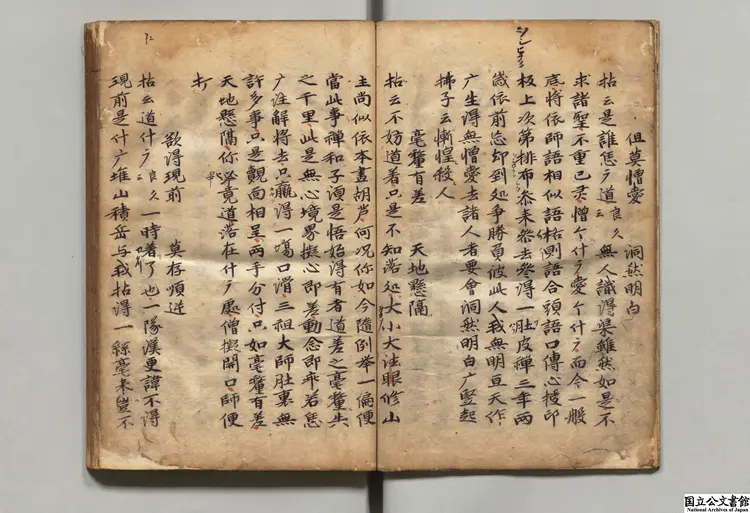 但莫憎愛　洞然明白
拈云是誰恁广道良久云無人識得渠雖然如是不
求諸聖不重己灵憎个什广愛个什广而今一般
底將依師語相似語格則語合頭語口傳心授印
板上次第排布参来参去参得一肚皮禅三年两
歳依前忘却到処争勝負彼此人我無明亘天作
广生得無憎愛去諸人者要會洞然明白广竪起
拂子云慚惶殺人
毫釐有差　天地懸隔
拈云不妨道着只是不知落処大小大法眼修山
主尚似依本畫胡芦何况你如今隨例举一徧便
當此事禅和子須是悟始得有者道差之毫釐失
之千里此是無心境界擬心即差動念即乖若恁
广注解将去只贏得一場口滑三祖大師肚裏無
許多事只是覿面相呈两手分付只如毫釐有差
天地懸隔你必竟道落在什广處僧擬開口師便
打
欲得現前　莫存順逆
拈云道什广良久云一時着了也一隊漢更諱不得
現前是什广堆山積岳与我拈得一絲毫来豈不
国立公文書館
National Archives of Japan